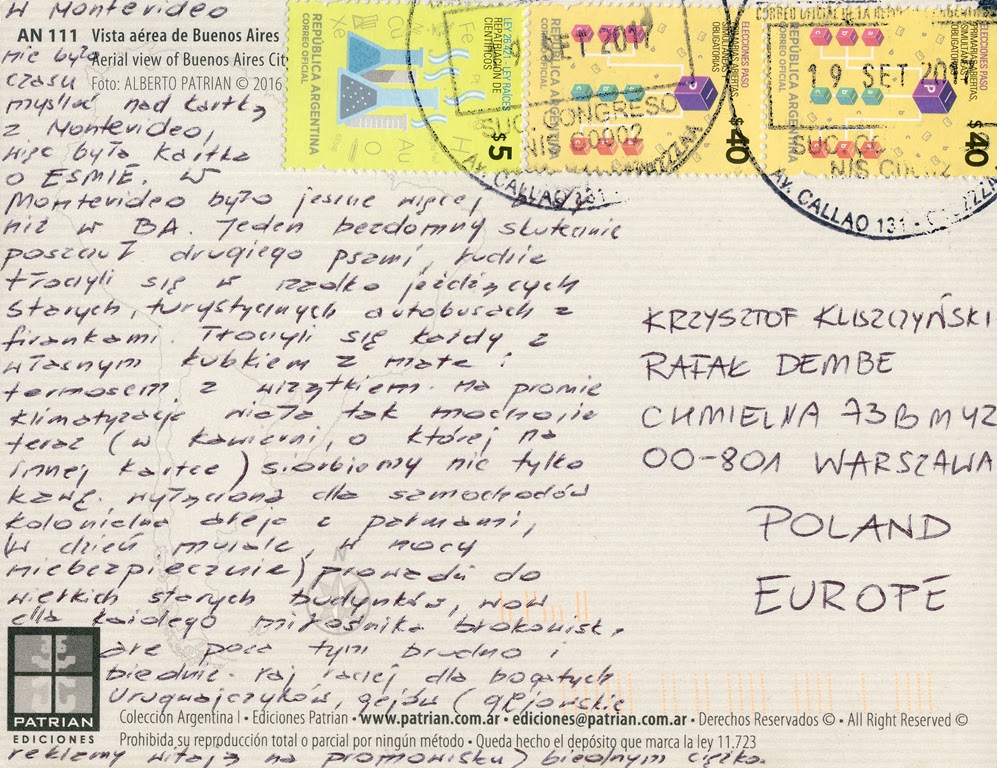 W Montevideo
AN 111 Vista aérea de Buenos Aires
nie było
Aerial view of Buenos Aires City
czasu
Foto: ALBERTO PATRIAN © 2016
myśleć nad kartką
z Montevideo,
więc była kartka
o ESMIE. W
Montevideo było jeszcze więcej
niż w BA. Jeden bezdomny skutecznie
poszczuł drugiego psami, ludzie
tłoczyli się w rzadko jeżdżących
starych, turystycznych autobusach z
firankami. Tłoczyli się każdy z
własnym kubkiem z mate i
termosem z wrzątkiem. Na promie
klimatyzacja wiała tak mocno
teraz (w kawiarni, o której na
innej kartce) siorbiemy nie tylko
kawę. Wyłączona dla samochodów
kolonialna aleja z palmami,
(w dzień murale, w nocy
niebezpiecznie) prowadzi do
wielkich starych budynków, wow
dla każdego miłośnika brokowisk,
ale poza tym brudno i
biednie. Raj raczej dla bogatych
Urugwajczyków, gejów (gejowskie
reklamy witają na promowisku) biednym ciężko.
REPÚBLICA ARGENTINA
CORREO OFICIAL
LEY 26.421 - LEY RAÍCES
REPATRIACIÓN DE
CIENTÍFICOS
$5
Xe
Cu
Fe
Au
O
H
REPÚBLICA ARGENTINA
CORREO OFICIAL
ELECCIONES PASO
PRIMARIAS, ABIERTAS,
SIMULTÁNEAS,
OBLIGATORIAS
P
$40
REPÚBLICA ARGENTINA
CORREO OFICIAL
ELECCIONES PASO
PRIMARIAS, ABIERTAS,
SIMULTÁNEAS,
OBLIGATORIAS
P
$40
SET 201
SUC CONGRESO
NIS C0002
AV. CALLAO 131
CORREO OFICIAL DE LA REP
19 SET 201
SUC CO
NIS C0002
AV. CALLAO 131 -
KRZYSZTOF KLISZCZYŃSKI
RAFAŁ DEMBE
CHMIELNA 73B M 42
00-801 WARSZAWA
POLAND
EUROPE
N
PATRIAN
EDICIONES
Colección Argentina I • Ediciones Patrian • www.patrian.com.ar • ediciones@patrian.com.ar • Derechos Reservados © • All Right Reserved ©
Prohibida su reproducción total o parcial por ningún método • Queda hecho el depósito que marca la ley 11.723